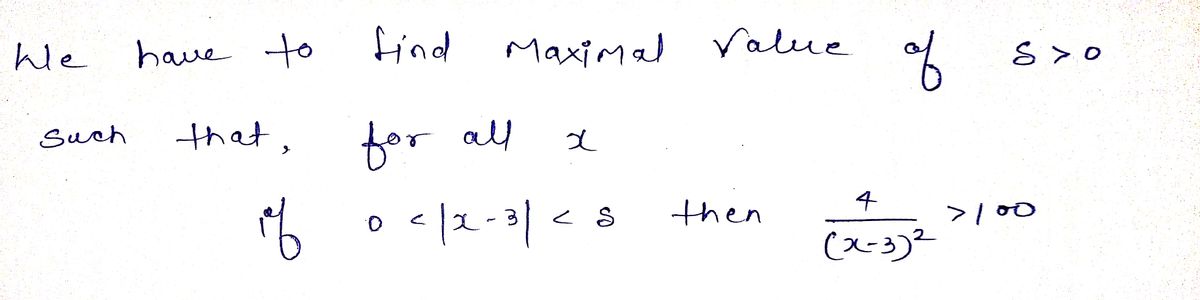 We have to find Maximal Value of δ > 0
such that, for all x
if 0 < |x-3| < δ then 4/(x-3)² > 100